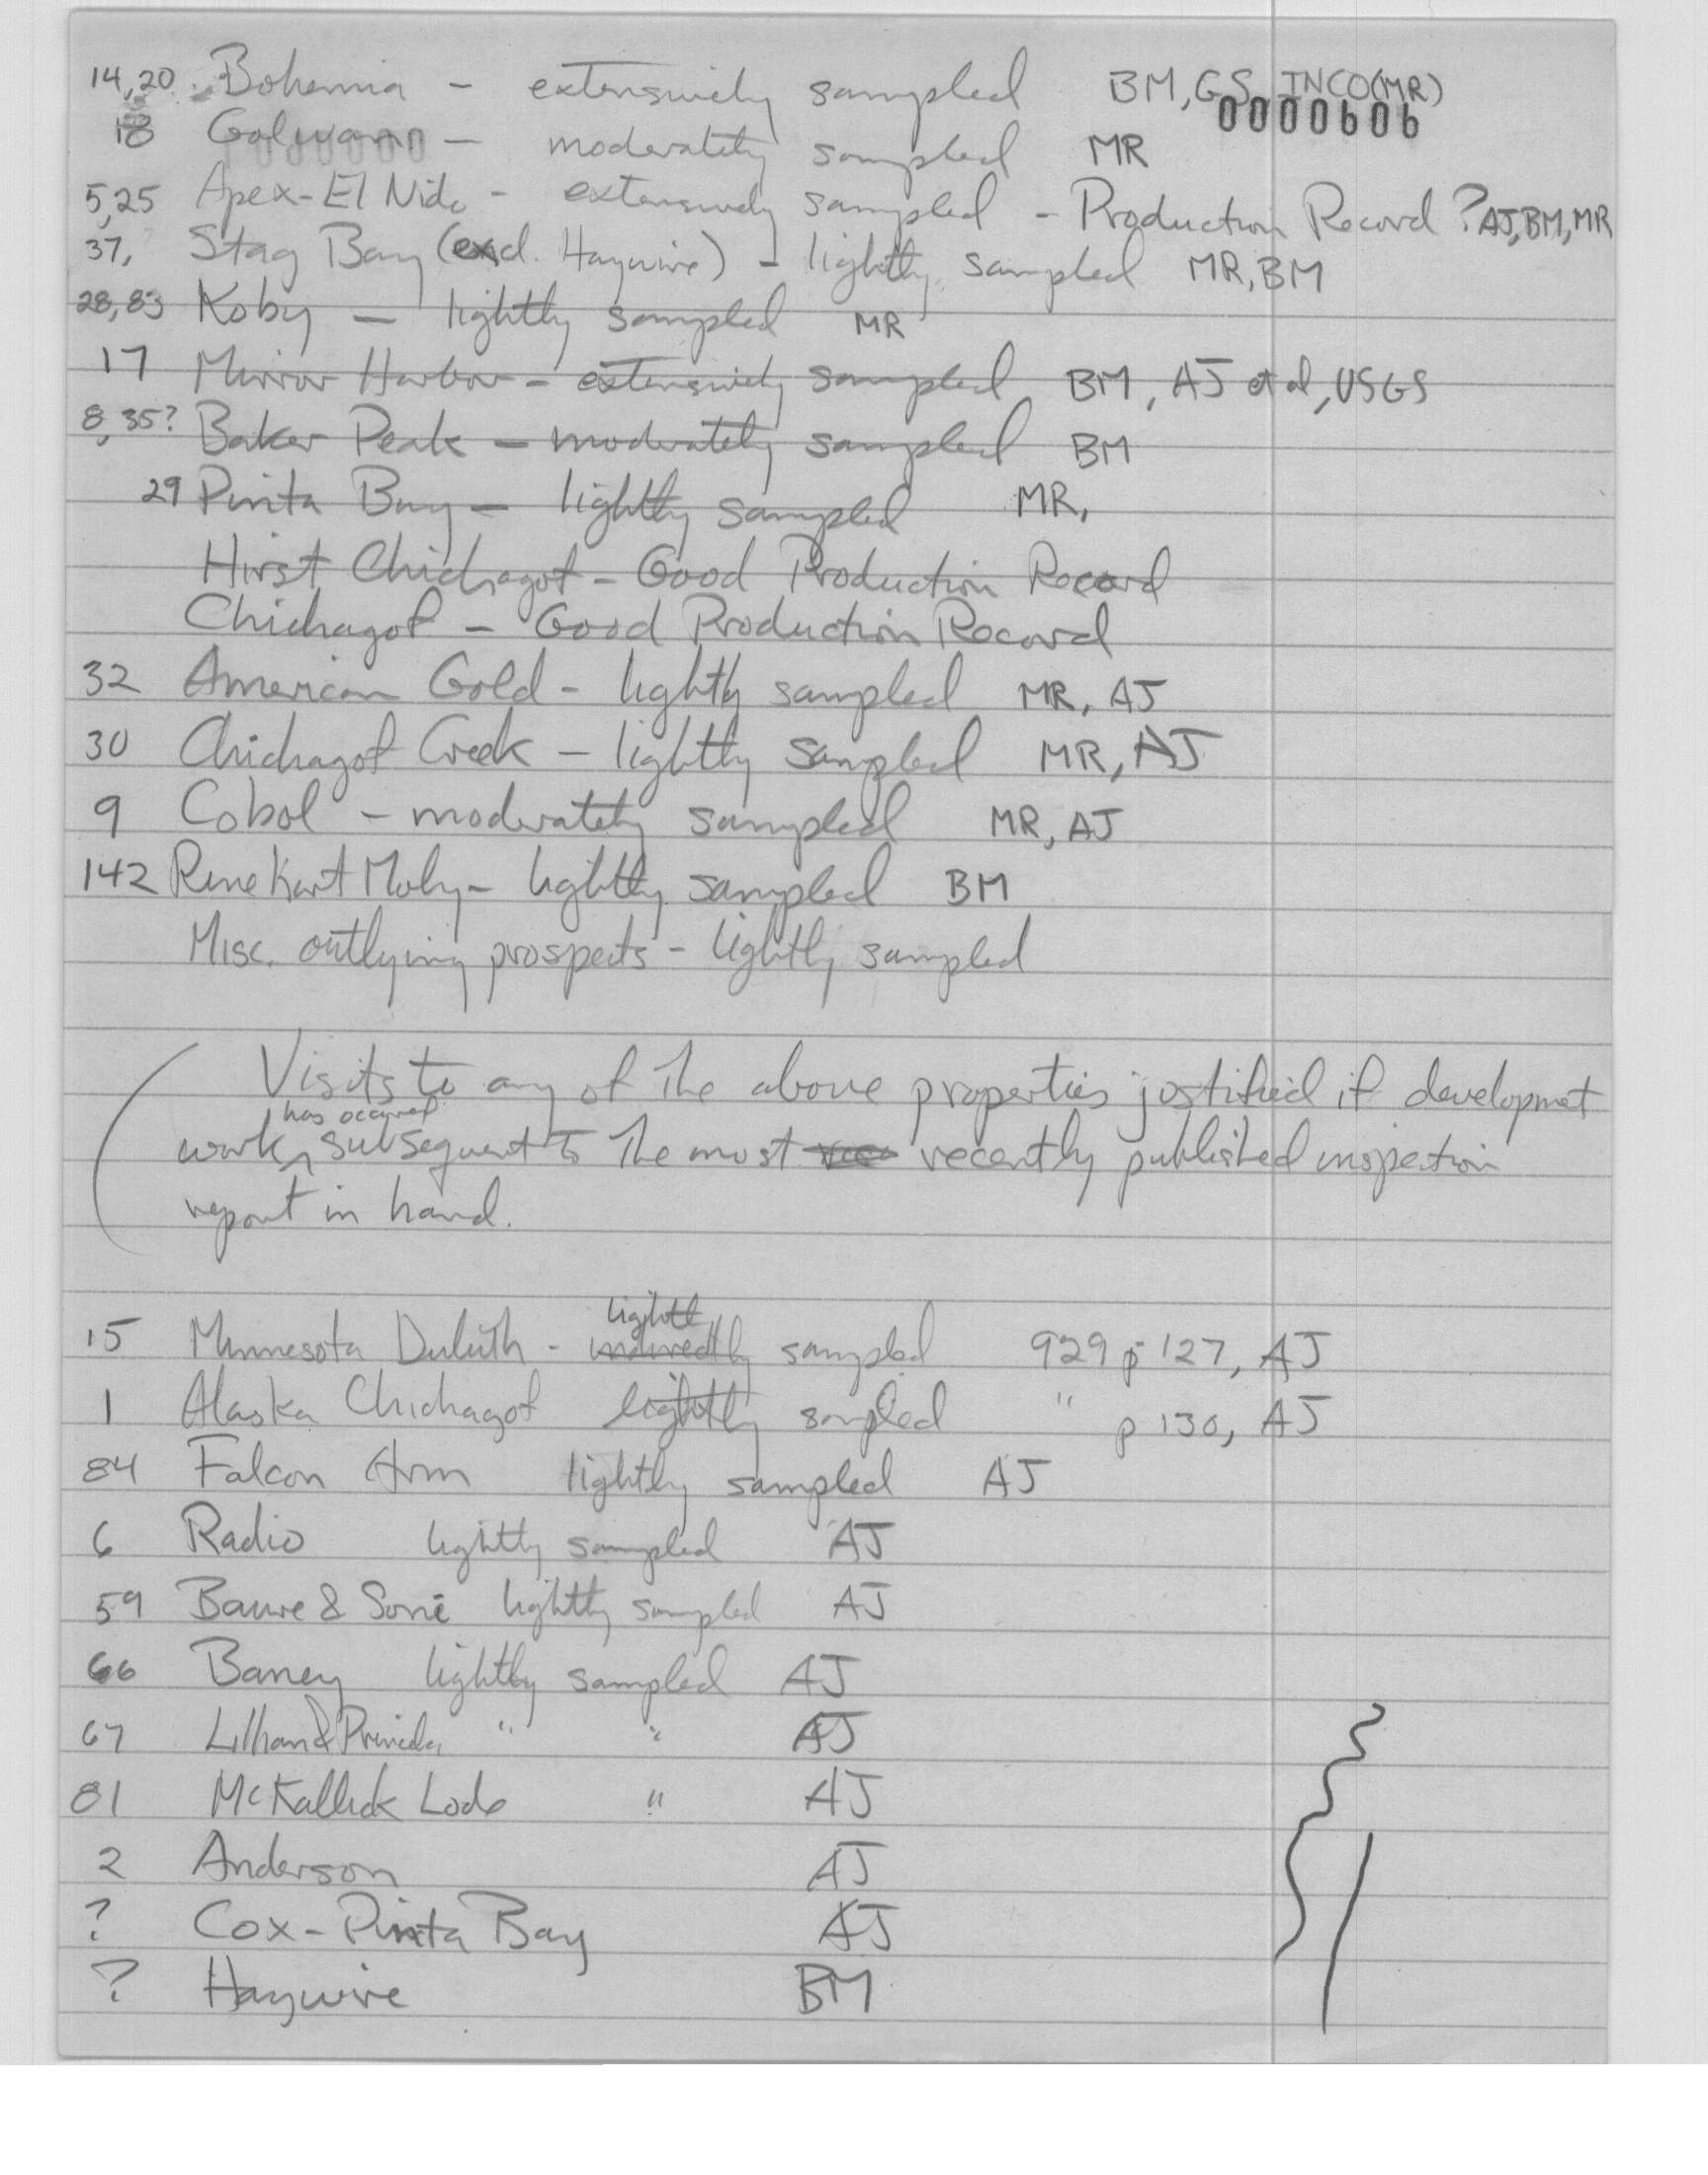 14,20 Bohemia - extensively sampled BM, GS, INCO(MR)
0000606
18 - moderately sampled MR
5,25 Apex-El Nido - extensively sampled - Production Record ? AJ, BM, MR
37, Stag Bay (excl. Haywire) - lightly sampled MR, BM
28,83 Koby - lightly sampled MR
17 Mirror Harbor - extensively sampled BM, AJ et al, USGS
8, 35? Baker Peak - moderately sampled BM
29 Pinta Bay - lightly sampled MR,
Hirst Chichagof - Good Production Record
Chichagof - Good Production Record
32 American Gold - lightly sampled MR, AJ
30 Chichagof Creek - lightly sampled MR, AJ
9 Cobol - moderately sampled MR, AJ
142 Rinehart Moly - lightly sampled BM
Misc. outlying prospects - lightly sampled
Visits to any of the above properties justified if developmet
has occured
work subsequent to the most recently published inspection
report in hand.
lightl
15 Minnesota Duluth - sampled 929 p 127, AJ
1 Alaska Chichagof lightly sampled " p 130, AJ
84 Falcon Arm lightly sampled AJ
6 Radio lightly sampled AJ
59 & lightly sampled AJ
66 Baney lightly sampled AJ
67 Lillian & " " AJ
81 McKallick Lode " AJ
2 Anderson AJ
? Cox - Pinta Bay AJ
? Haywire BM